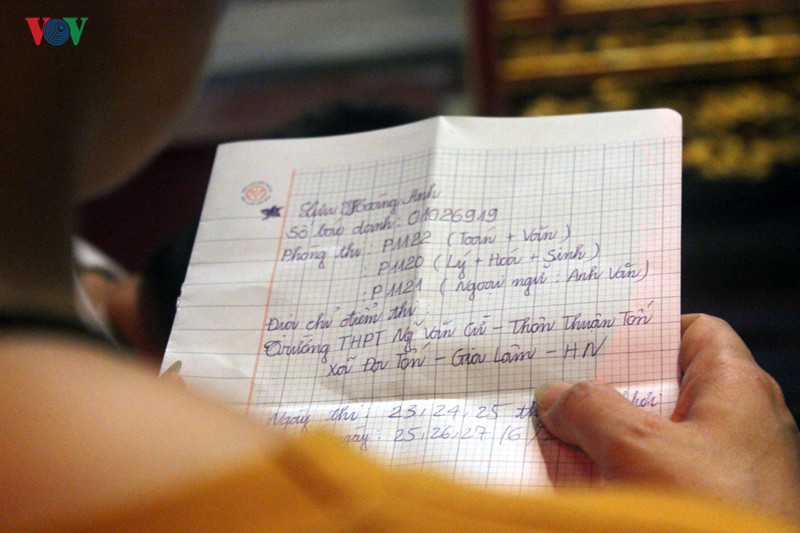 VOV
Lưu Hoàng Anh
Số báo danh: 01026919
Phòng thi: P1122 (Toán + Văn)
: P1120 (Lý + Hoá + Sinh)
: P1121 (Ngoại ngữ: Anh Văn)
Địa chỉ điểm thi
Trường THPT Ng Văn Cừ - Thôn Thuận Tốn
Xã Đa Tốn - Gia Lâm - HN
Ngày thi: 23, 24, 25
: 25, 26, 27/6/